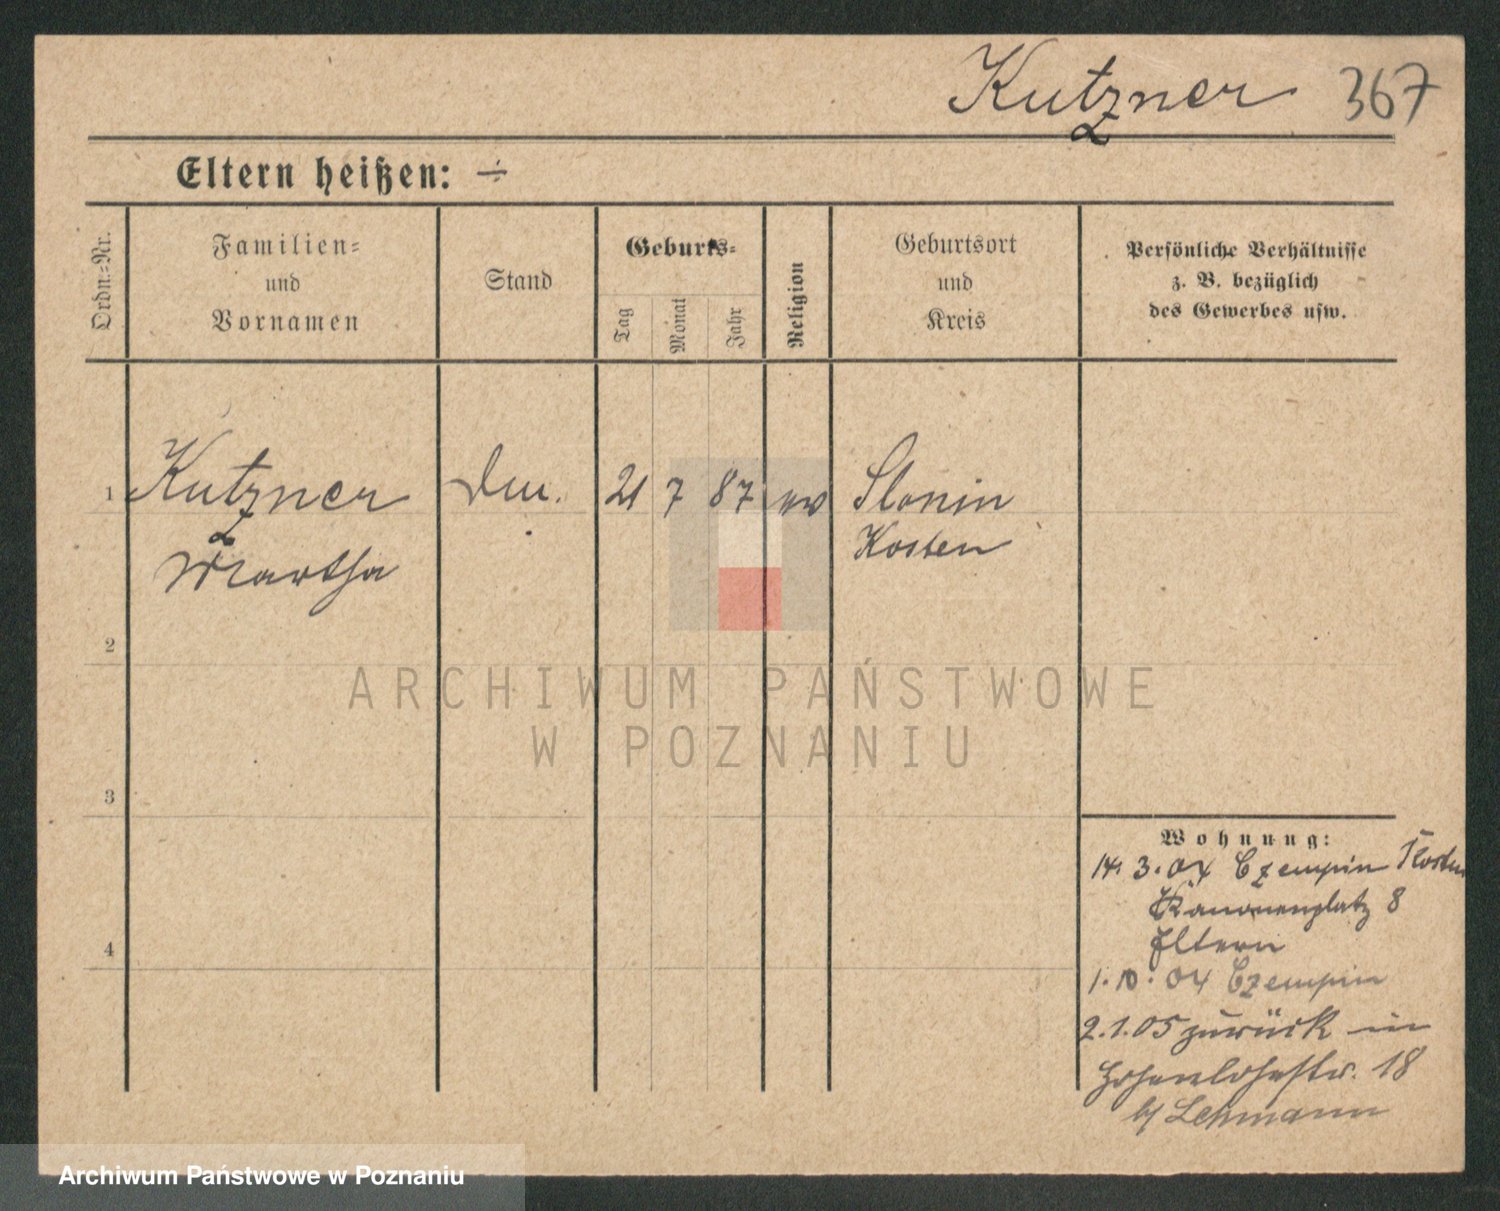 Kutzner 367
Eltern heißen: ÷
Ordn.-Nr.
Familien-
und
Vornamen
Stand
Geburts-
Tag
Monat
Jahr
Religion
Geburtsort
und
Kreis
Persönliche Verhältnisse
z. B. bezüglich
des Gewerbes usw.
1 Kutzner 21 7 87 Slonin
Kosten
Martha
2
3
4
Wohnung:
14. 3. 04 Czempin Kosten
Kanonenplatz 8
Eltern
1. 10. 04 Czempin
2. 1. 05 zurück in
Hohenlohestr. 18
b/ Lehmann
ARCHIWUM PAŃSTWOWE
W POZNANIU
Archiwum Państwowe w Poznaniu